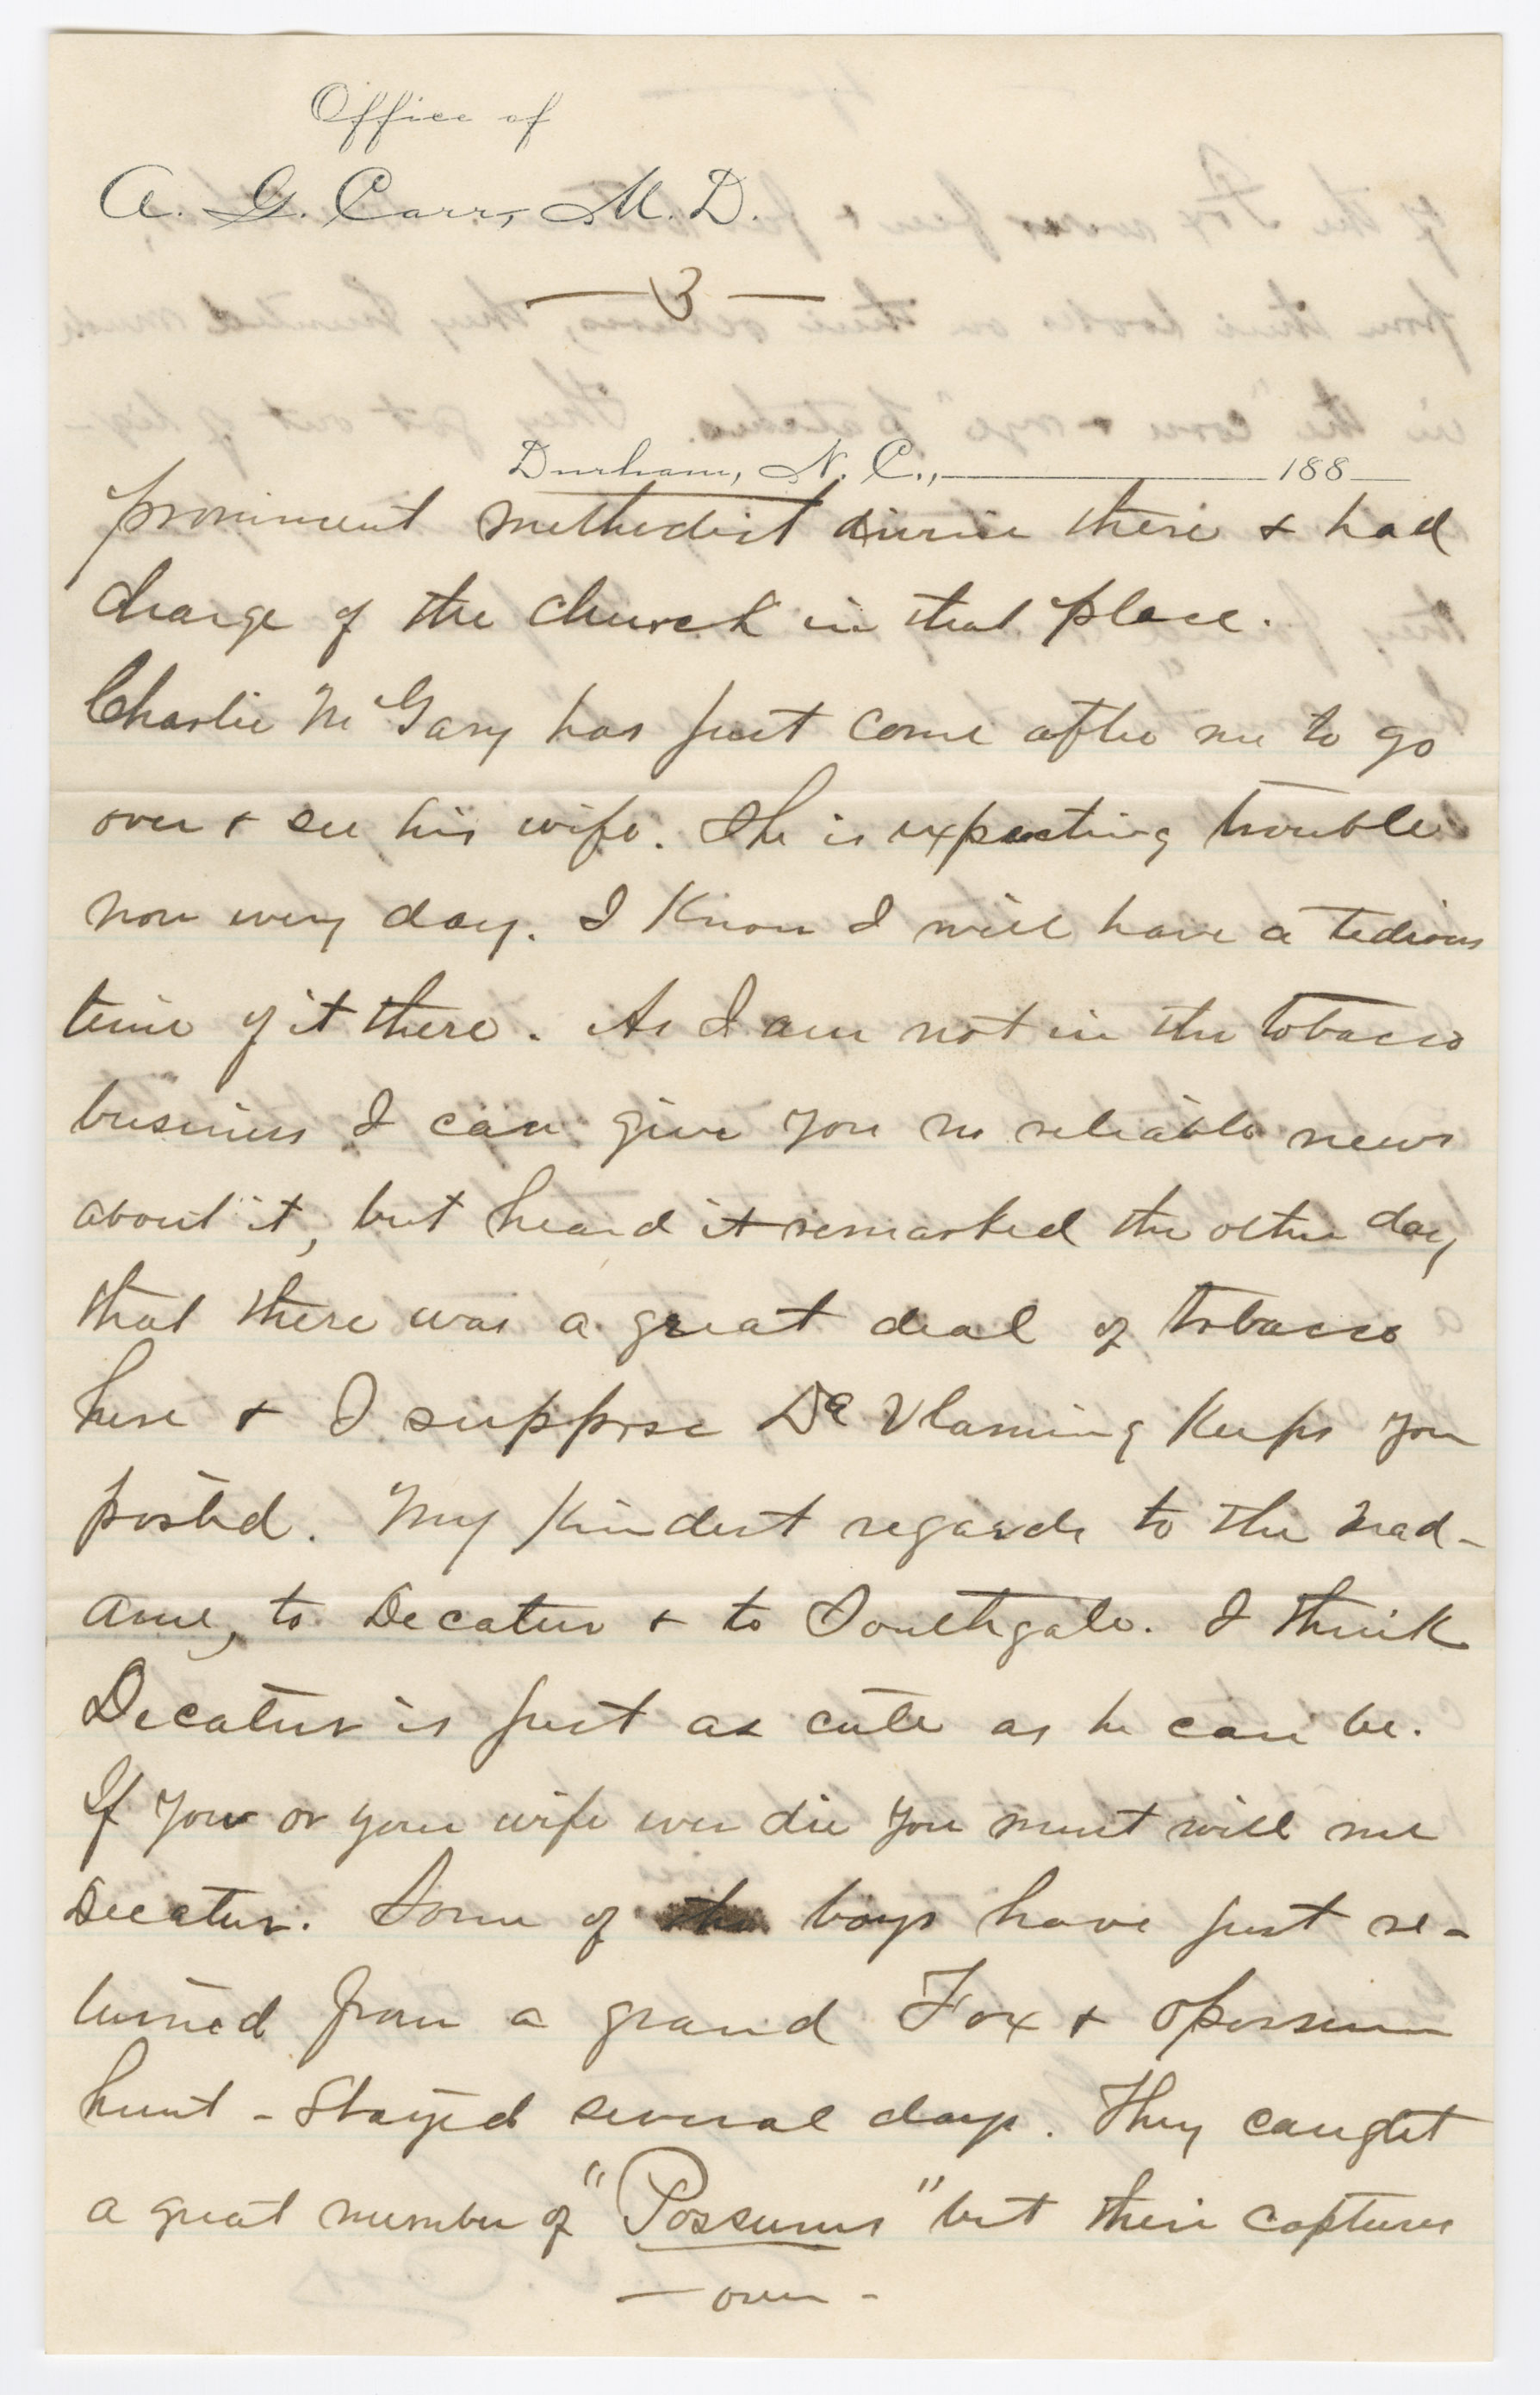 Office of
A. G. Carr, M. D.
— 3 —
Durham, N. C., 188
prominent methodist divine there & had
charge of the church in that place.
Charlie McGary has just come after me to go
over & see his wife. She is expecting trouble
now every day. I Know I will have a tedious
time of it there. As I am not in the tobacco
business I can give you no reliable news
about it, but heard it remarked the other day
that there was a great deal of tobacco
here & I suppose De Vlaming Keeps you
posted. My Kindest regards to the Mad-
ame, to Decatur & to Southgate. I think
Decatur is just as cute as he can be.
If you or your wife ever die you must will me
Decatur. Some of the boys have just re-
turned from a grand Fox & Opossum
hunt - Stayed several days. They caught
a great number of "Possums" but their captures
— over -